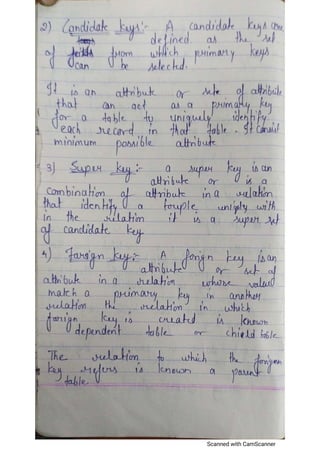 2) Candidate keys:- A candidate keys are
defined as the set
of from which primary keys
can be selected.
It is an attribute or sets of attribute
that can act as a primary key
for a table to uniquely identify
each record in that table. It consist
minimum possible attribute
3) Super key:- a super key is an
attribute or is a
combination of attribute in a relation
that identify a touple uniqely with
in the relation it is a super set
of candidate key
4) Forign key:- A forign key is an
attribute or set of
attribute in a relation whose value
match a primary key in another
relation the relation in which
forign key is created is known
dependent table or chield table
The relation to which the forign
key refers is known a parent
table
Scanned with CamScanner